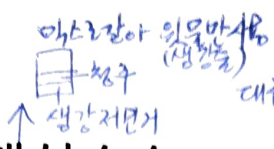 믹스로 갈아 윗물만 사용
(생강물)
청주
생강저민거